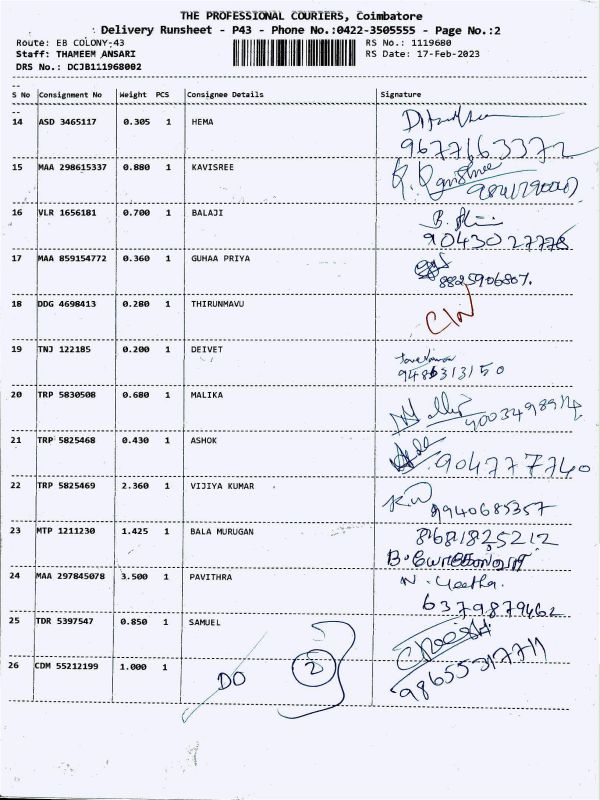 THE PROFESSIONAL COURIERS, Coimbatore
Delivery Runsheet - P43 - Phone No.:0422-3505555 - Page No.:2
Route: EB COLONY-43 RS No.: 1119680
Staff: THAMEEM ANSARI RS Date: 17-Feb-2023
DRS No.: DCJB111968002
S No Consignment No Weight PCS Consignee Details Signature
14 ASD 3465117 0.305 1 HEMA
9677163372
15 MAA 298615337 0.880 1 KAVISREE
16 VLR 1656181 0.700 1 BALAJI
9043027778
17 MAA 859154772 0.360 1 GUHAA PRIYA
8825906807.
18 DDG 4698413 0.280 1 THIRUNMAVU
19 TNJ 122185 0.200 1 DEIVET
9486313150
20 TRP 5830508 0.680 1 MALIKA
21 TRP 5825468 0.430 1 ASHOK
9047777740
22 TRP 5825469 2.360 1 VIJIYA KUMAR
9940685357
23 MTP 1211230 1.425 1 BALA MURUGAN
8681825212
24 MAA 297845078 3.500 1 PAVITHRA
N. Geetha.
6379879462
25 TDR 5397547 0.850 1 SAMUEL
26 CDM 55212199 1.000 1
DO 2
9865531771